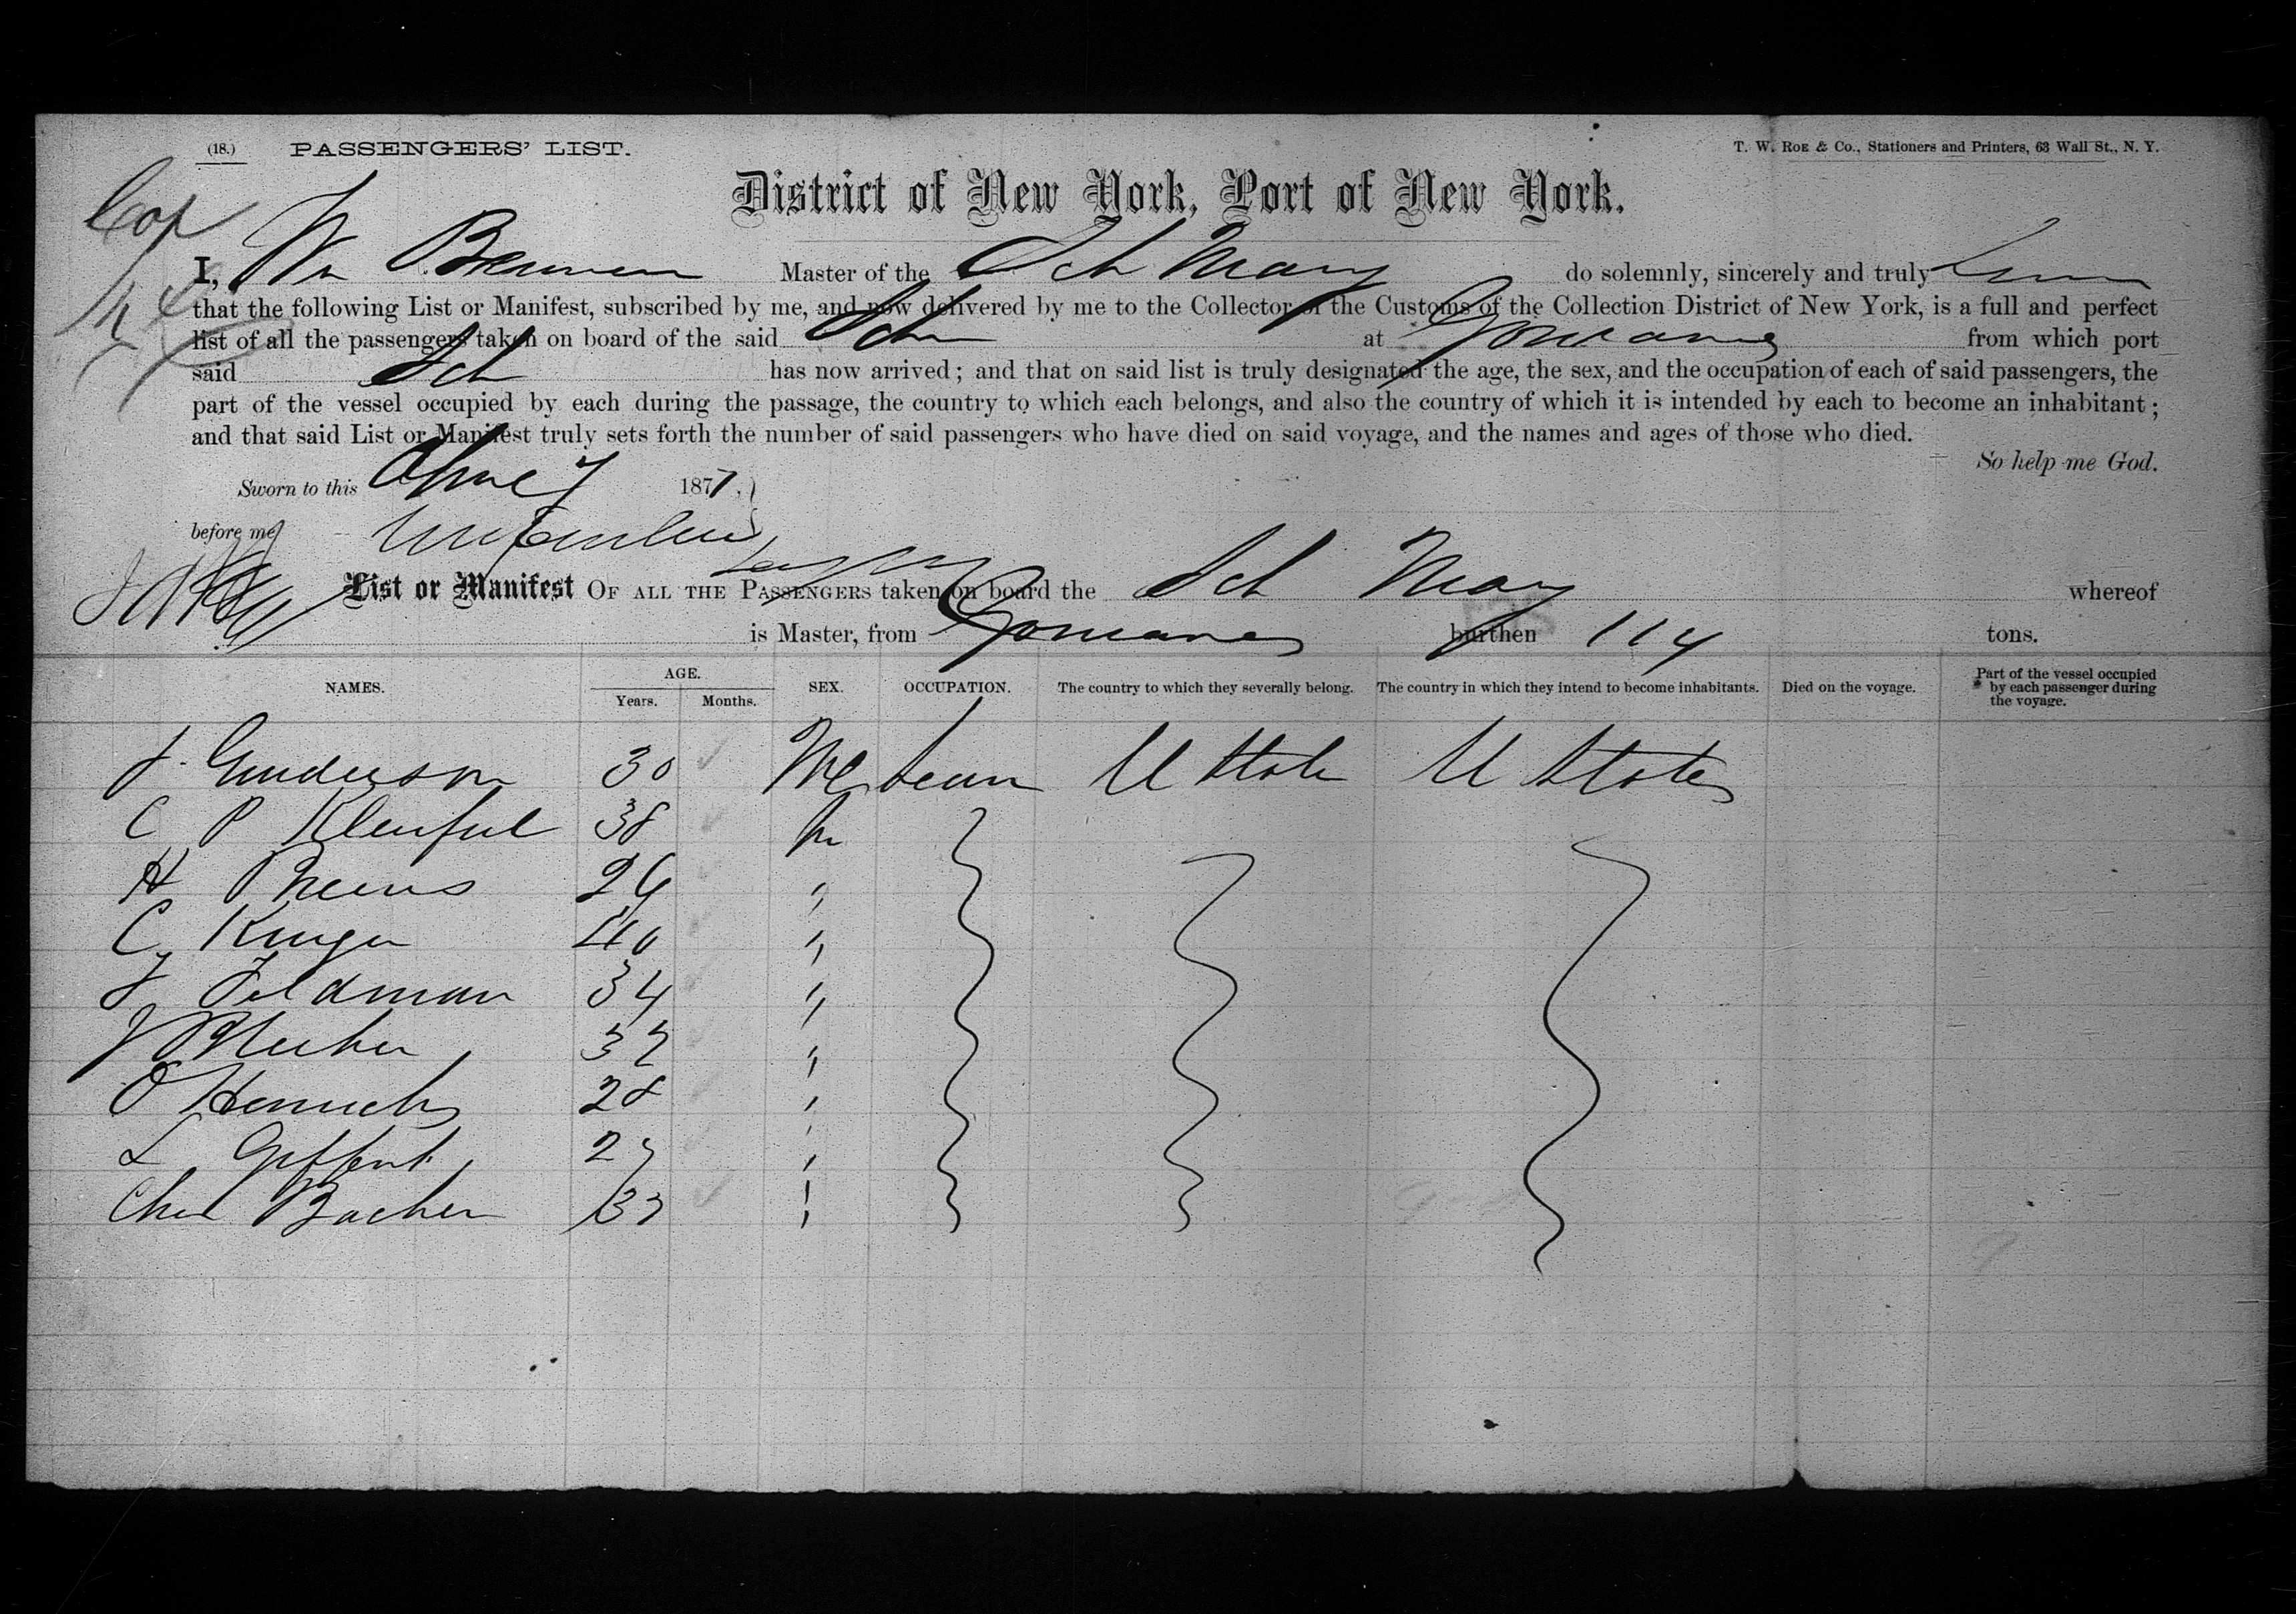 (18.) PASSENGERS' LIST. T. W. ROE & Co., Stationers and Printers, 63 Wall St., N. Y.
District of New York, Port of New York.
Cop
I, Wm Master of the Sch Mary do solemnly, sincerely and truly
that the following List or Manifest, subscribed by me, and now delivered by me to the Collector of the Customs of the Collection District of New York, is a full and perfect
list of all the passengers taken on board of the said Sch at Gonaives from which port
said Sch has now arrived; and that on said list is truly designated the age, the sex, and the occupation of each of said passengers, the
part of the vessel occupied by each during the passage, the country to which each belongs, and also the country of which it is intended by each to become an inhabitant;
and that said List or Manifest truly sets forth the number of said passengers who have died on said voyage, and the names and ages of those who died.
So help me God.
Sworn to this 1877,
before me
List or Manifest OF ALL THE PASSENGERS taken on board the Sch Mary whereof
is Master, from Gonaives burthen 114 tons.
NAMES. AGE. Years. Months. SEX. OCCUPATION. The country to which they severally belong. The country in which they intend to become inhabitants. Died on the voyage. Part of the vessel occupied by each passenger during the voyage.
J. Gunderson 30 M U State U States
C P 38 m
H 26 "
C Kruger 40 "
J Feldman 34 "
J "
O Henrichs 28 "
L "
Chas Bacher 33 "